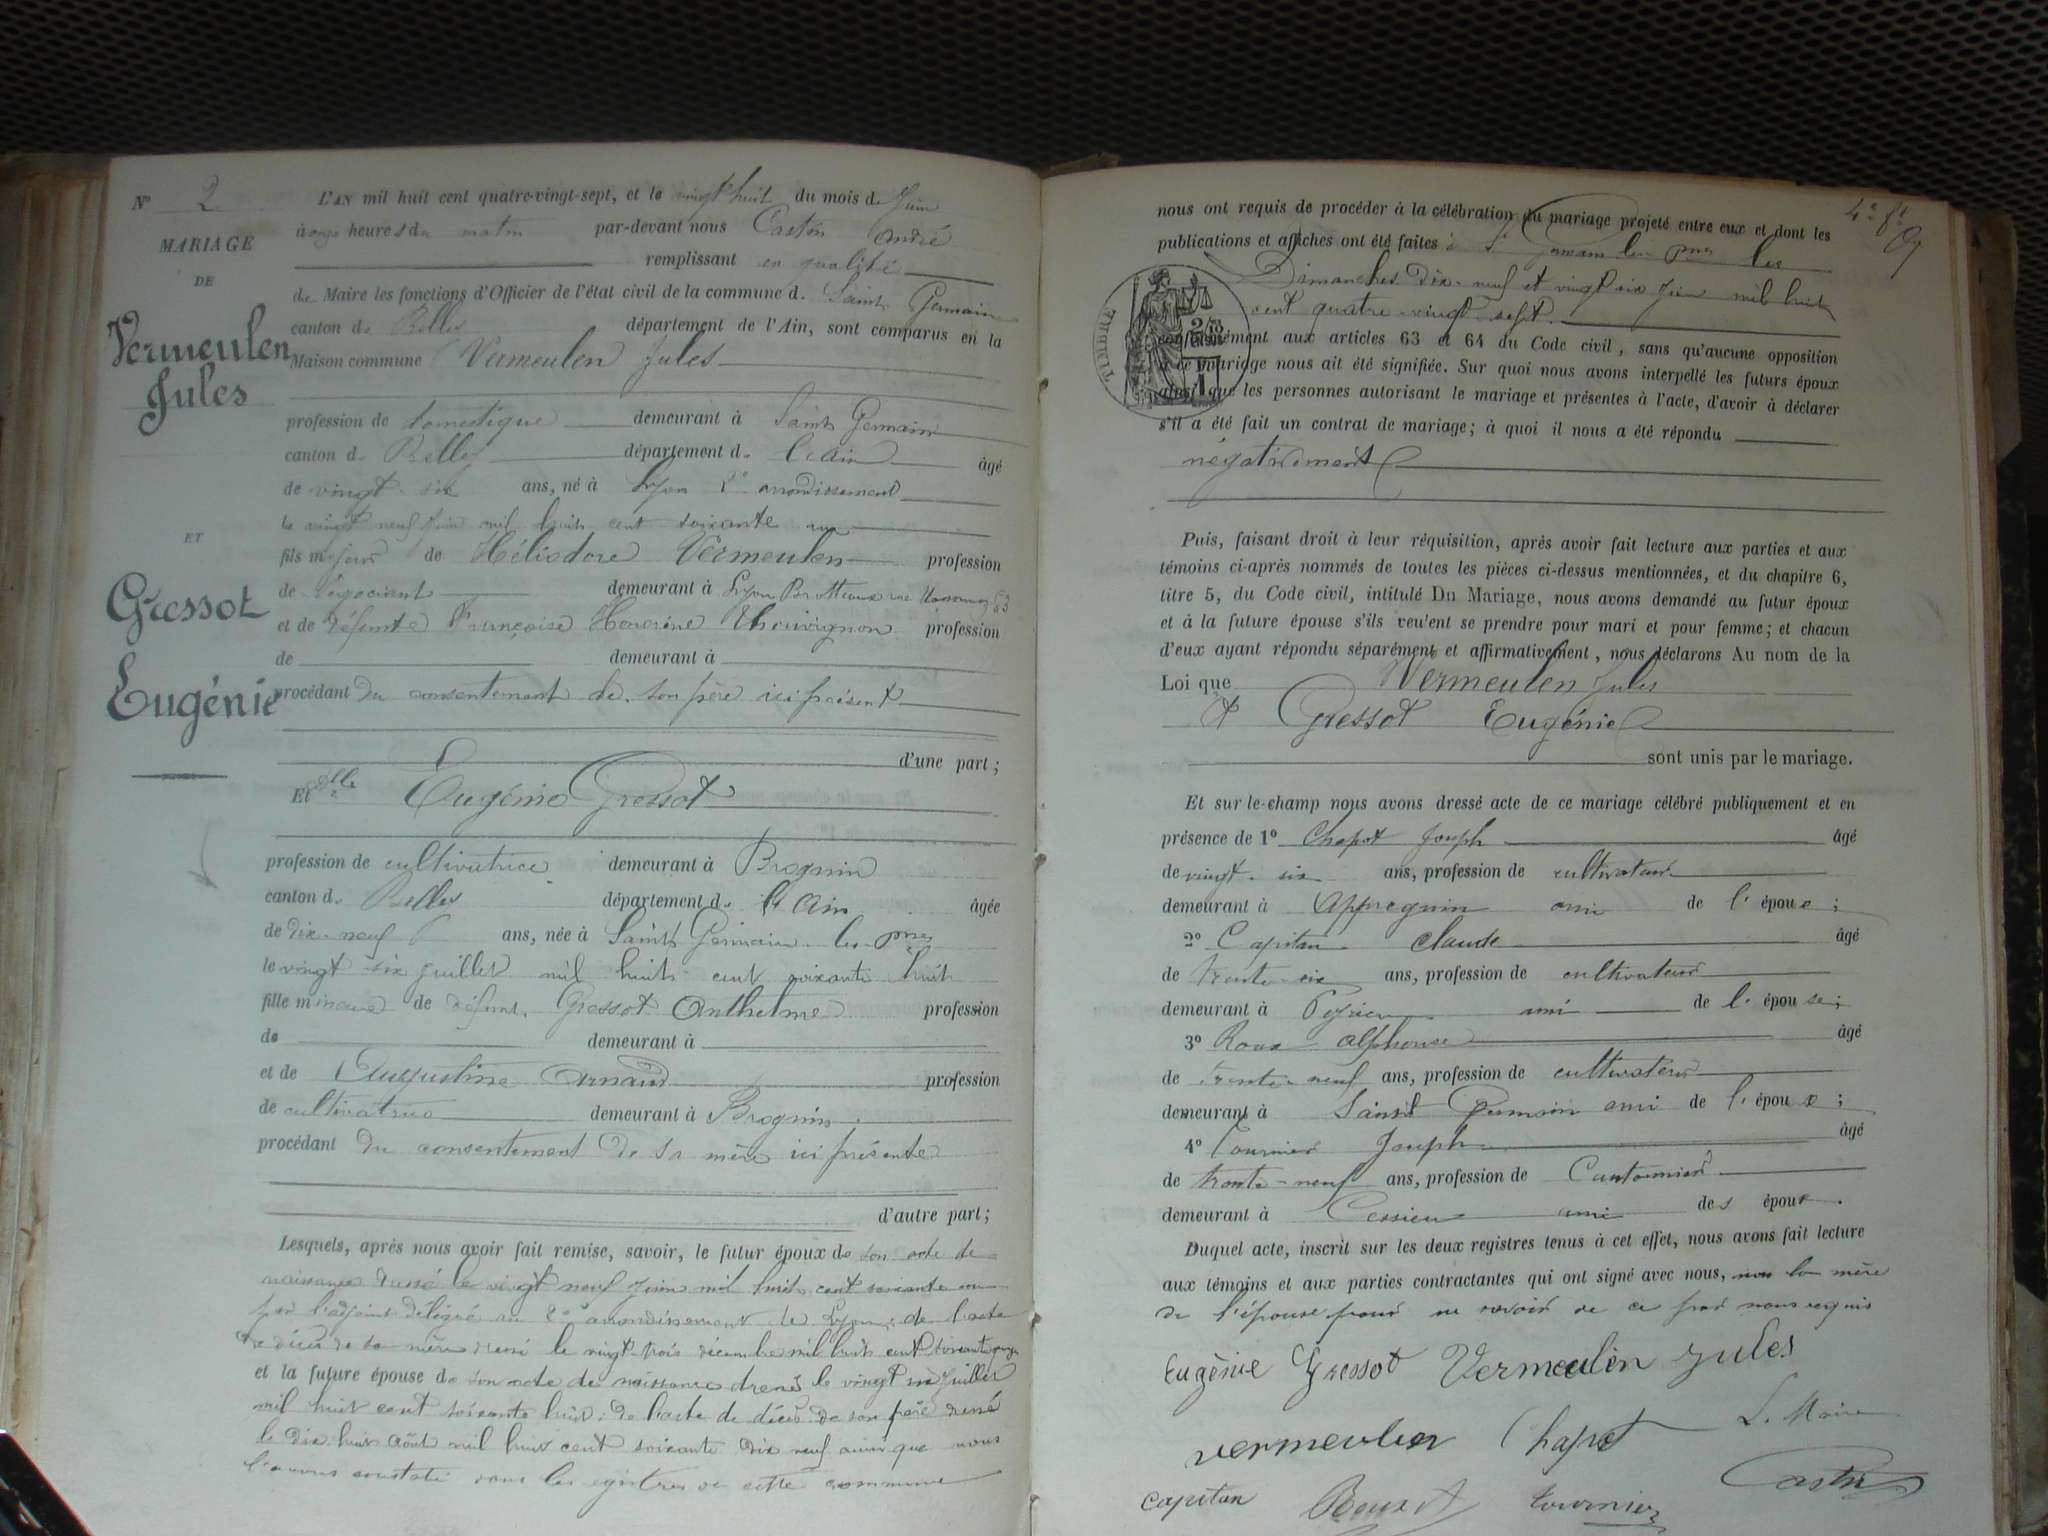 N° 2
MARIAGE
DE
Vermeulen
Jules
ET
Gressot
Eugénie
L'AN mil huit cent quatre-vingt-sept, et le vingt huit du mois de Juin
à onze heures du matin par-devant nous Castin André
remplissant en qualité
de Maire les fonctions d'Officier de l'état civil de la commune d. Saint Germain
canton de Belley département de l'Ain, sont comparus en la
Maison commune Vermeulen Jules
profession de domestique demeurant à Saint Germain
canton de Belley département de l'Ain âgé
de vingt-six ans, né à Lyon 2e arrondissement
le vingt neuf Juin mil huit cent soixante un
fils majeur de Héliodore Vermeulen profession
de négociant demeurant à Lyon Brotteaux rue 53
et de défunte Françoise Honorine Thouvignon profession
de demeurant à
procédant du consentement de son père ici présent
d'une part;
Et Dlle Eugénie Gressot
profession de cultivatrice demeurant à Brognin
canton de Belley département de l'Ain âgée
de dix-neuf ans, née à Saint Germain les
le vingt six juillet mil huit cent soixante huit
fille mineure de défunt Gressot Anthelme profession
de demeurant à
et de Augustine Arnaud profession
de cultivatrice demeurant à Brognin
procédant du consentement de sa mère ici présente
d'autre part;
Lesquels, après nous avoir fait remise, savoir, le futur époux de son acte de
naissance dressé le vingt neuf Juin mil huit cent soixante un
par l'adjoint délégué au 2e arrondissement de Lyon; de l'acte
de décès de sa mère dressé le vingt trois décembre mil huit cent soixante
et la future épouse de son acte de naissance dressé le vingt six Juillet
mil huit cent soixante huit; de l'acte de décès de son père dressé
le dix huit Août mil huit cent soixante dix neuf ainsi que nous
l'avons constaté dans les registres de cette commune
nous ont requis de procéder à la célébration du mariage projeté entre eux et dont les
publications et affiches ont été faites à St Germain les les
Dimanches dix-neuf et vingt six Juin mil huit
cent quatre-vingt-sept.
TIMBRE
conformément aux articles 63 et 64 du Code civil, sans qu'aucune opposition
à ce mariage nous ait été signifiée. Sur quoi nous avons interpellé les futurs époux
ainsi que les personnes autorisant le mariage et présentes à l'acte, d'avoir à déclarer
s'il a été fait un contrat de mariage; à quoi il nous a été répondu
négativement
Puis, faisant droit à leur réquisition, après avoir fait lecture aux parties et aux
témoins ci-après nommés de toutes les pièces ci-dessus mentionnées, et du chapitre 6,
titre 5, du Code civil, intitulé Du Mariage, nous avons demandé au futur époux
et à la future épouse s'ils veu'ent se prendre pour mari et pour femme; et chacun
d'eux ayant répondu séparément et affirmativement, nous déclarons Au nom de la
Loi que Vermeulen Jules
et Gressot Eugénie
sont unis par le mariage.
Et sur le-champ nous avons dressé acte de ce mariage célébré publiquement et en
présence de 1° Chapot Joseph âgé
de vingt-six ans, profession de cultivateur
demeurant à Appregnin ami de l'époux;
2° Capitan Claude âgé
de trente six ans, profession de cultivateur
demeurant à Peyrieu ami de l'épouse;
3° Roux Alphonse âgé
de trente-neuf ans, profession de cultivateur
demeurant à Saint Germain ami de l'époux;
4° Tournier Joseph âgé
de trente-neuf ans, profession de Cantonnier
demeurant à Cessieu ami des époux.
Duquel acte, inscrit sur les deux registres tenus à cet effet, nous avons fait lecture
aux témoins et aux parties contractantes qui ont signé avec nous, non la mère
de l'épouse pour ne savoir de ce par nous requis
Eugénie Gressot Vermeulen Jules
Vermeulen Chapot Le Maire
Capitan Tournier Castin